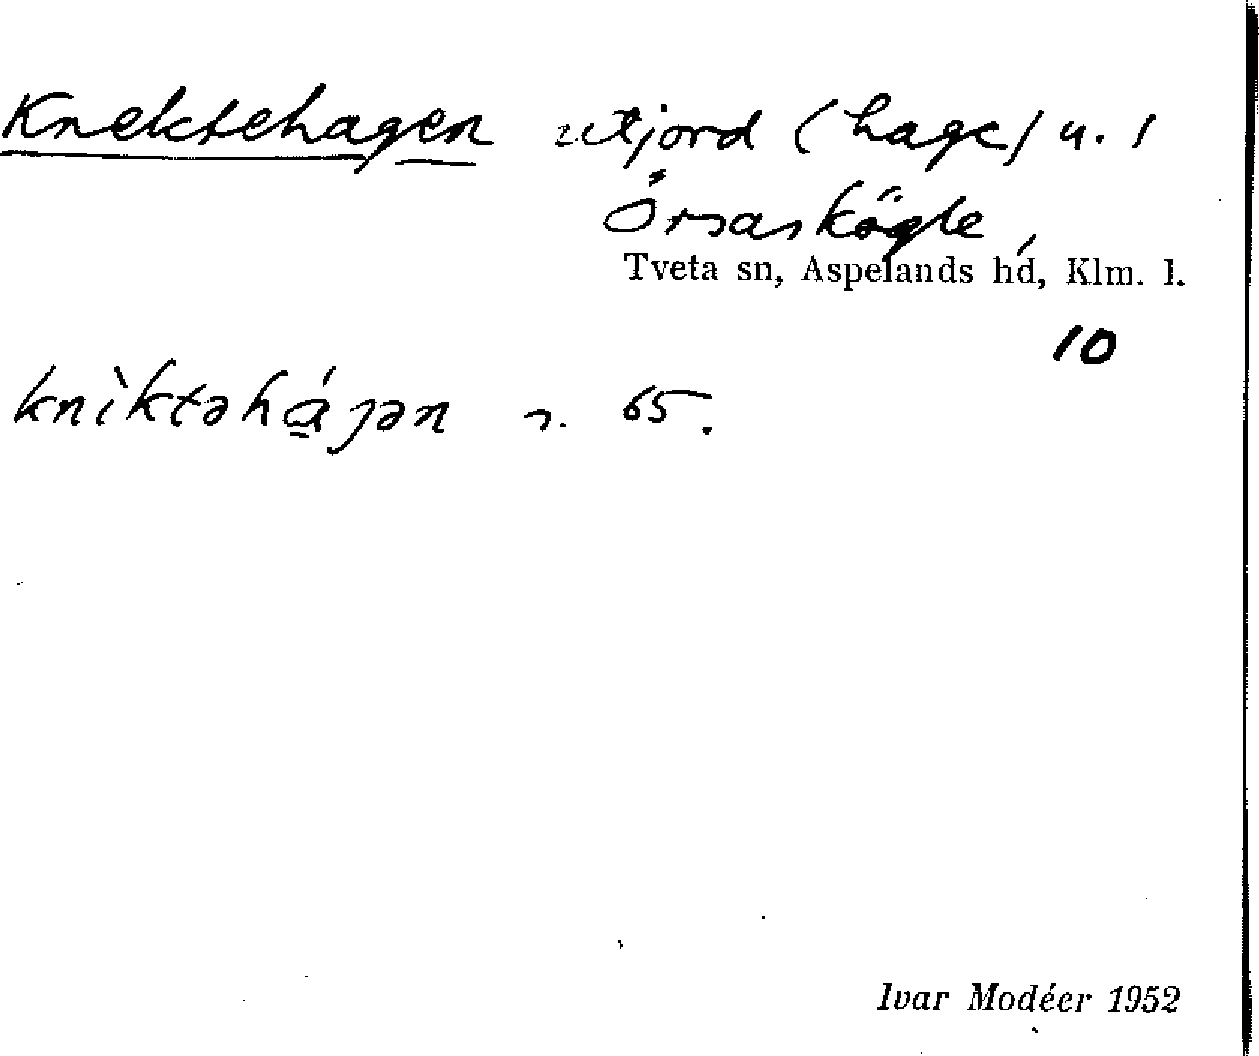 Knektehagen utjord (hage) u. 1
Örsaskögle,
Tveta sn, Aspelands hd, Klm. l.
10
knìktəhájən n. 65.
Ivar Modéer 1952